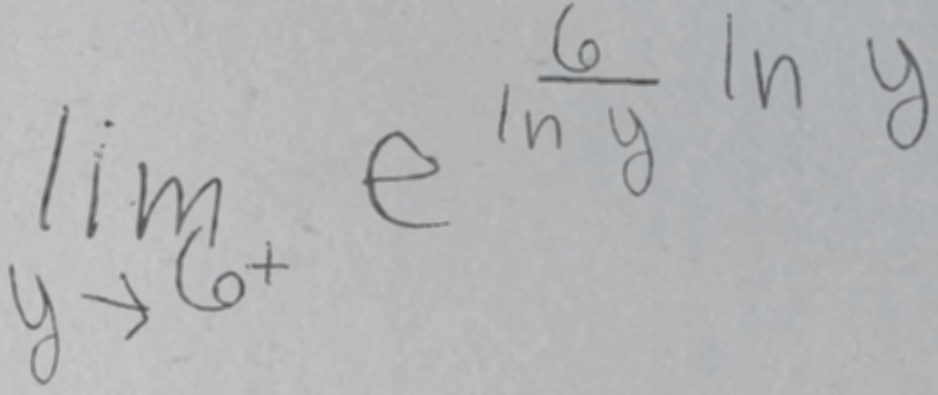 \lim_{y \to 6^+} e^{\frac{6}{\ln y} \ln y}